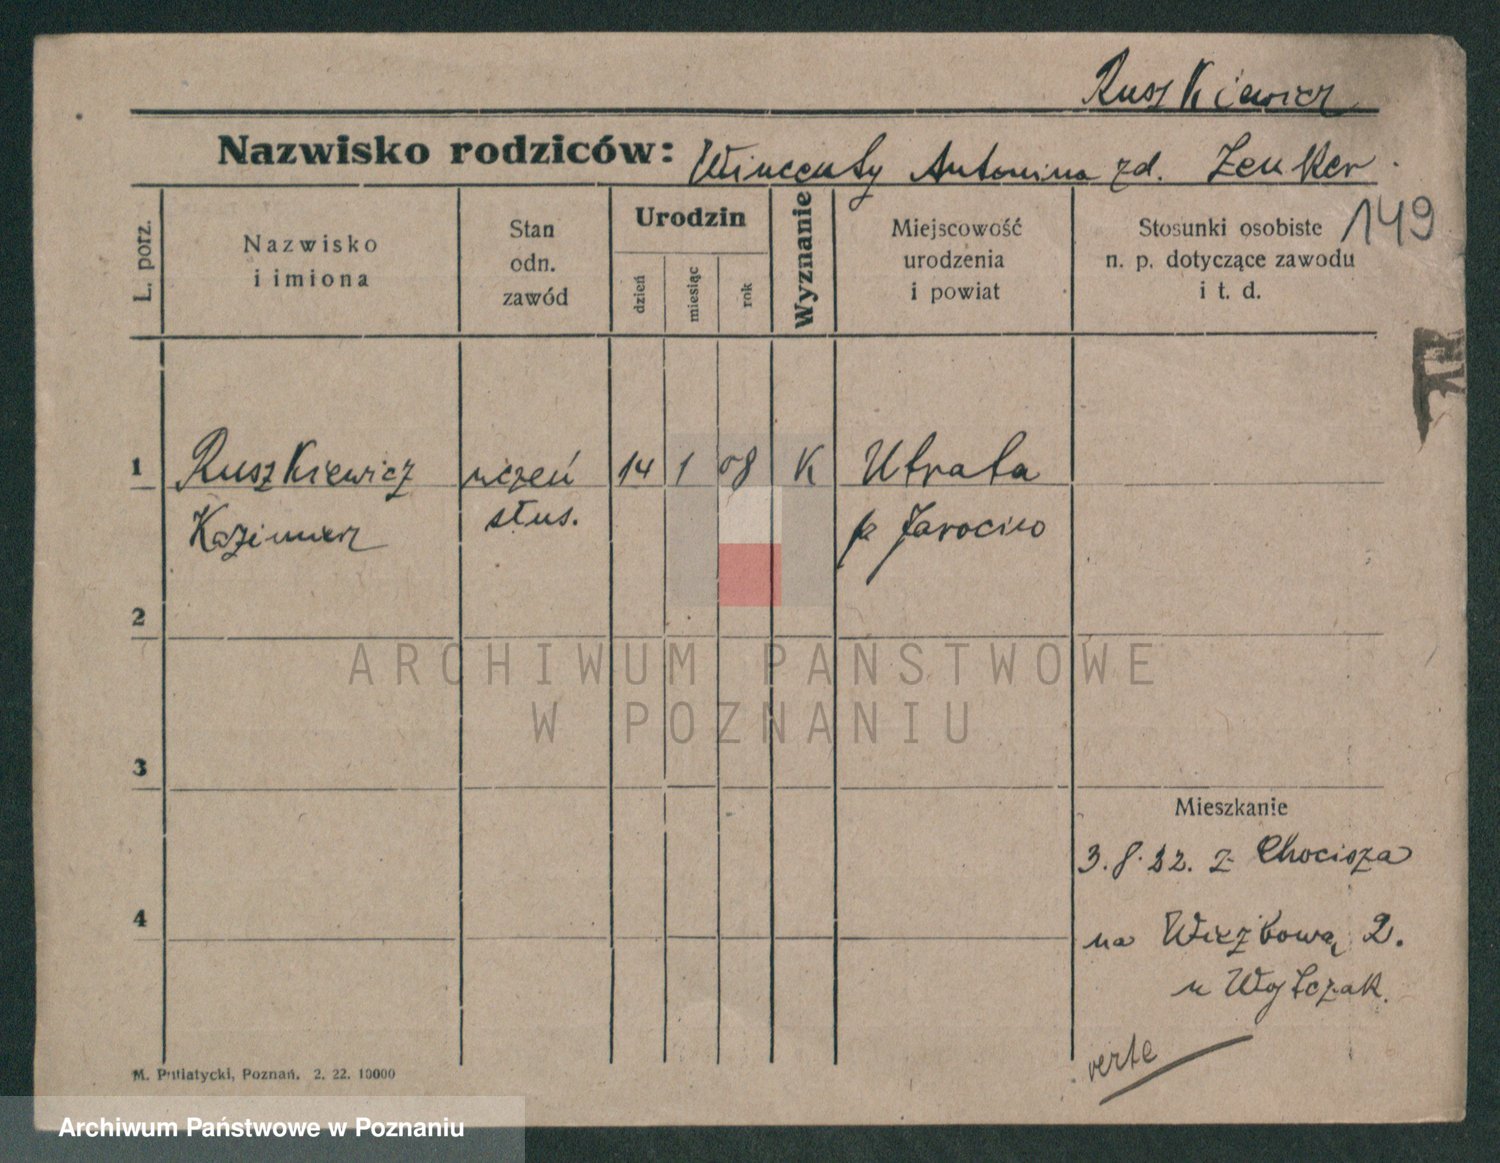 Ruszkiewicz
Nazwisko rodziców: Wincenty Antonina zd. Zenker.
149
L. porz.
Nazwisko
i imiona
Stan
odn.
zawód
Urodzin
dzień
miesiąc
rok
Wyznanie
Miejscowość
urodzenia
i powiat
Stosunki osobiste
n. p. dotyczące zawodu
i t. d.
1 Ruszkiewicz uczeń 14 1 08 K Utrata
Kazimierz słus. p Jarocino
2
ARCHIWUM PAŃSTWOWE
W POZNANIU
3
Mieszkanie
3.8.22. z Chocisza
4
na Wierzbową 2.
u Wojtczak.
verte
M. Putiatycki, Poznań. 2. 22. 10000
Archiwum Państwowe w Poznaniu